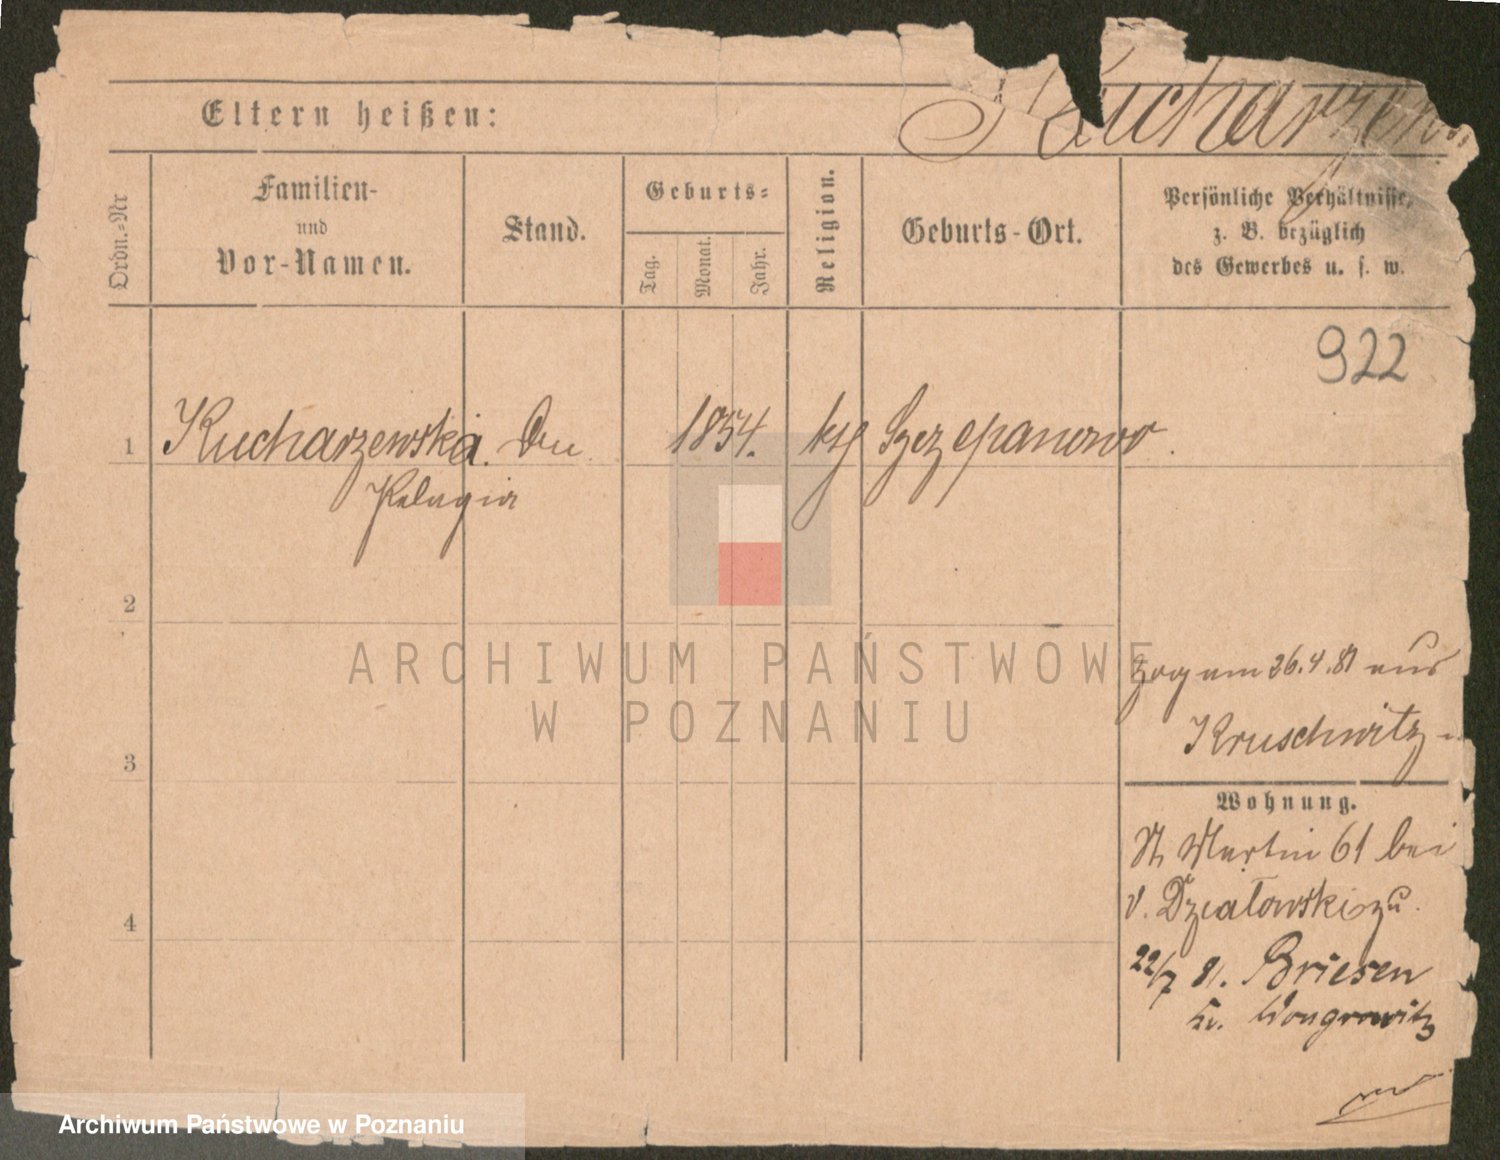 Eltern heißen:
Kucharzews
Ordn.-Nr
Familien-
und
Vor-Namen.
Stand.
Geburts-
Tag.
Monat.
Jahr.
Religion.
Geburts-Ort.
Persönliche Verhältnisse,
z. B. bezüglich
des Gewerbes u. s. w.
922
1 Kucharzewska. 1854. ktf Szczepanowo.
Pelagia
2
3
4
zog am 26.4.81 aus
Kruschwitz
Wohnung.
St Martin 61 bei
v. Działowski zu
22/7 81. Briesen
Kr. Wongrowitz
ARCHIWUM PAŃSTWOWE
W POZNANIU
Archiwum Państwowe w Poznaniu